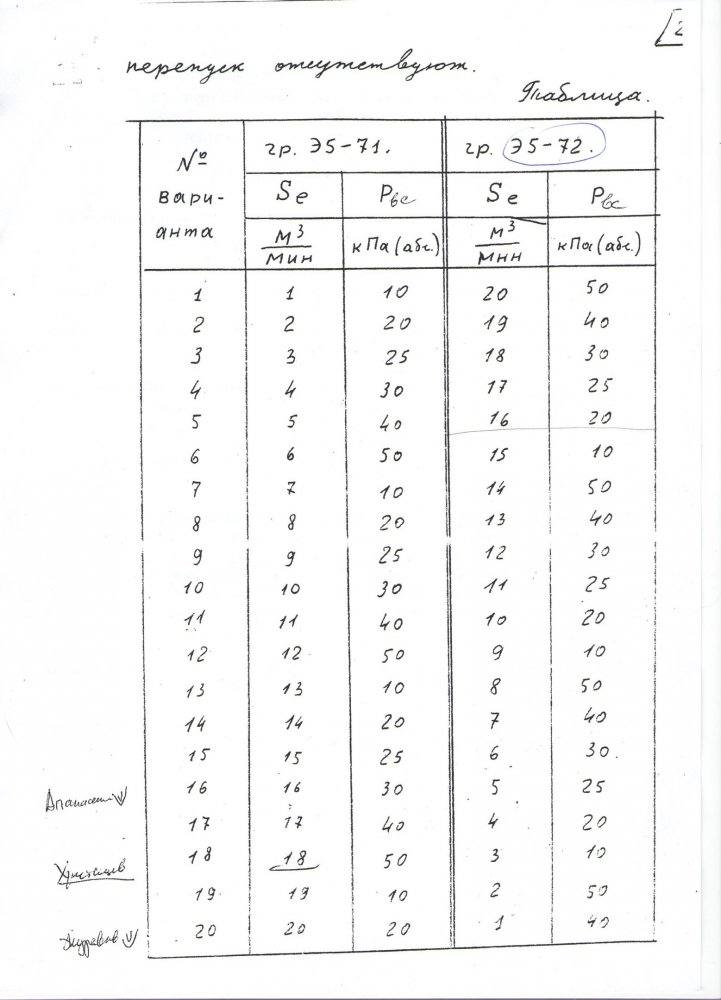 [2
перепуск отсутствуют.
Таблица.
№ вари- анта гр. Э5-71. гр. Э5-72.
Se Pвс Se Pвс
м³/мин кПа (абс.) м³/мин кПа (абс.)
1 1 10 20 50
2 2 20 19 40
3 3 25 18 30
4 4 30 17 25
5 5 40 16 20
6 6 50 15 10
7 7 10 14 50
8 8 20 13 40
9 9 25 12 30
10 10 30 11 25
11 11 40 10 20
12 12 50 9 10
13 13 10 8 50
14 14 20 7 40
15 15 25 6 30
16 16 30 5 25
17 17 40 4 20
18 18 50 3 10
19 19 10 2 50
20 20 20 1 40